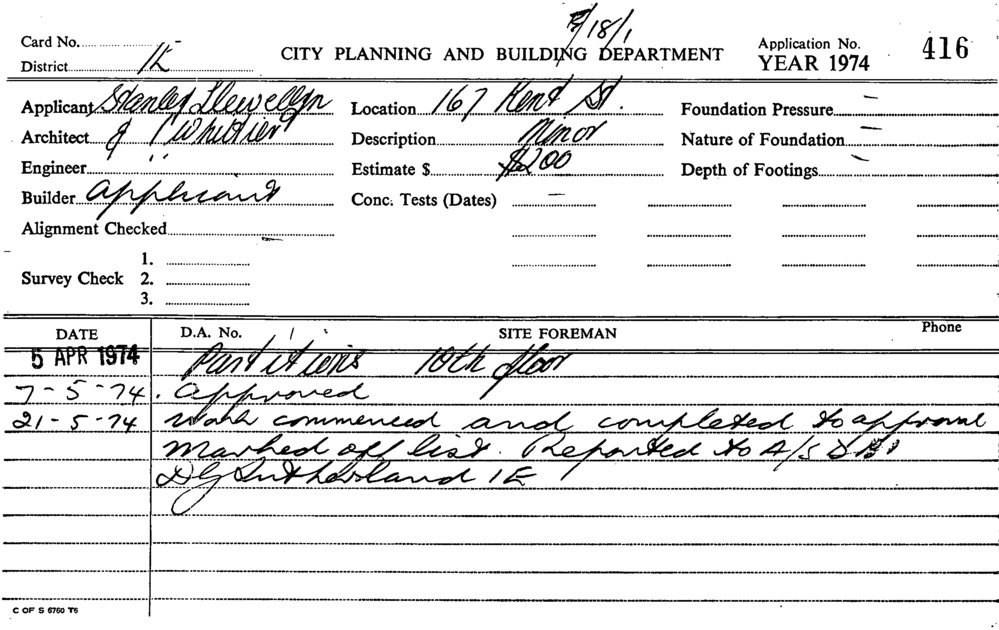 Card No.
District 1E
CITY PLANNING AND BUILDING DEPARTMENT
/18/1
Application No. 416
YEAR 1974
Applicant Stanley Llewellyn
Location 167 Kent St.
Foundation Pressure –
Architect
Description Minor
Nature of Foundation –
Engineer "
Estimate $ $200
Depth of Footings –
Builder Applicant
Conc. Tests (Dates) –
Alignment Checked
Survey Check 1.
2.
3.
DATE D.A. No. SITE FOREMAN Phone
5 APR 1974 Partitions 10th floor
7-5-74. Approved
21-5-74 Work commenced and completed to approval
Marked off list. Reported to A/S
D G Sutherland 1E
C OF S 6760 T6